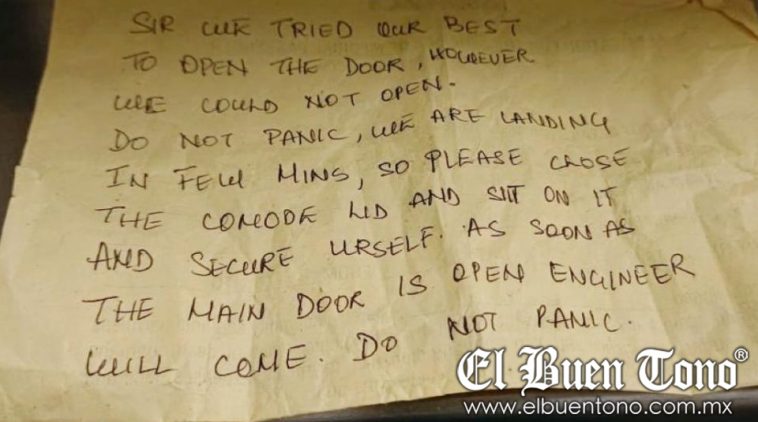 SIR WE TRIED OUR BEST
TO OPEN THE DOOR, HOWEVER
WE COULD NOT OPEN.
DO NOT PANIC, WE ARE LANDING
IN FEW MINS, SO PLEASE CLOSE
THE COMODE LID AND SIT ON IT
AND SECURE URSELF. AS SOON AS
THE MAIN DOOR IS OPEN ENGINEER
WILL COME. DO NOT PANIC.
El Buen Tono®
www.elbuentono.com.mx